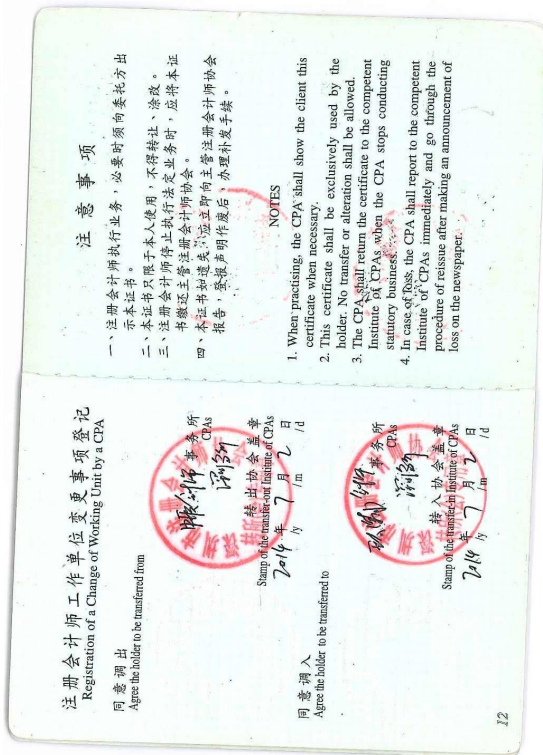 注册会计师工作单位变更事项登记
Registration of a Change of Working Unit by a CPA
同意调出
Agree the holder to be transferred from
事务所
CPAs
深圳
转出协会盖章
Stamp of the transfer-out Institute of CPAs
2014 年 7 月 2 日
/y /m /d
同意调入
Agree the holder to be transferred to
事务所
CPAs
深圳
转入协会盖章
Stamp of the transfer-in Institute of CPAs
2014 年 7 月 2 日
/y /m /d
12
注意事项
一、注册会计师执行业务，必要时须向委托方出
示本证书。
二、本证书只限于本人使用，不得转让、涂改。
三、注册会计师停止执行法定业务时，应将本证
书缴还主管注册会计师协会。
四、本证书如遗失，应立即向主管注册会计师协会
报告，登报声明作废后，办理补发手续。
NOTES
1. When practising, the CPA shall show the client this
certificate when necessary.
2. This certificate shall be exclusively used by the
holder. No transfer or alteration shall be allowed.
3. The CPA shall return the certificate to the competent
Institute of CPAs when the CPA stops conducting
statutory business.
4. In case of loss, the CPA shall report to the competent
Institute of CPAs immediately and go through the
procedure of reissue after making an announcement of
loss on the newspaper.